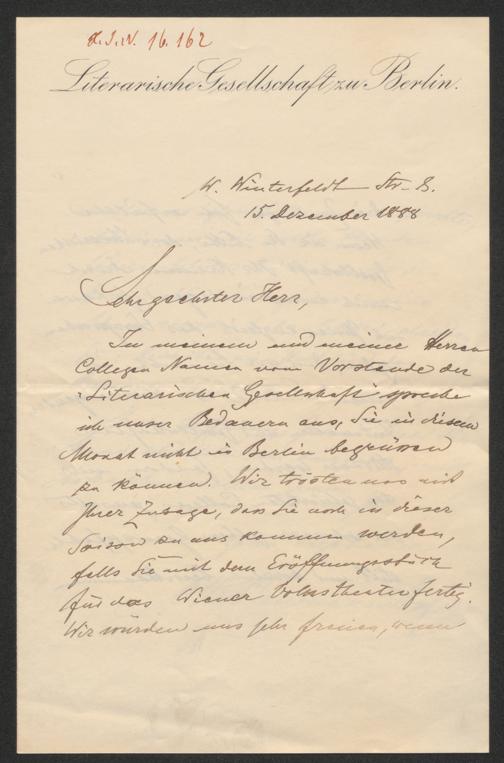 H.I.N. 16.162
Literarische Gesellschaft zu Berlin.
W. Winterfeldt Str. 8.
15. Dezember 1888
Sehrgeehrter Herr,
In meinem und meiner Herren
Collegen Namen vom Vorstande der
"Literarischen Gesellschaft" spreche
ich unser Bedauern aus, Sie in diesem
Monat nicht in Berlin begrüssen
zu können. Wir trösten uns mit
Ihrer Zusage, dass Sie noch in dieser
Saison zu uns kommen werden,
falls Sie mit dem Eröffnungsstück
für das Wiener Volkstheater fertig.
Wir würden uns sehr freuen, wenn